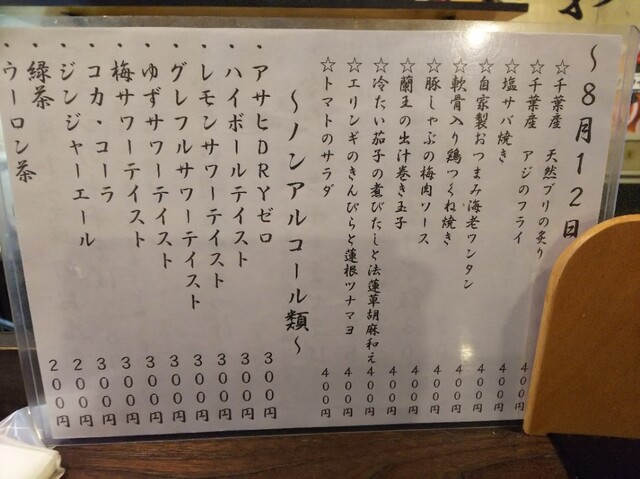 ～8月12日
☆千葉産　天然ブリの炙り
☆千葉産　アジのフライ 400
☆塩サバ焼き 400円
☆自家製おつまみ海老ワンタン 400円
☆軟骨入り鶏つくね焼き 400円
☆豚しゃぶの梅肉ソース 400円
☆蘭王の出汁巻き玉子 400円
☆冷たい茄子の煮びたしと法蓮草胡麻和え 400円
☆エリンギのきんぴらと蓮根ツナマヨ 400円
☆トマトのサラダ 400円
～ノンアルコール類～
・アサヒDRYゼロ 300円
・ハイボールテイスト 300円
・レモンサワーテイスト 300円
・グレフルサワーテイスト 300円
・ゆずサワーテイスト 300円
・梅サワーテイスト 300円
・コカ・コーラ 300円
・ジンジャーエール 200円
・緑茶 200円
・ウーロン茶